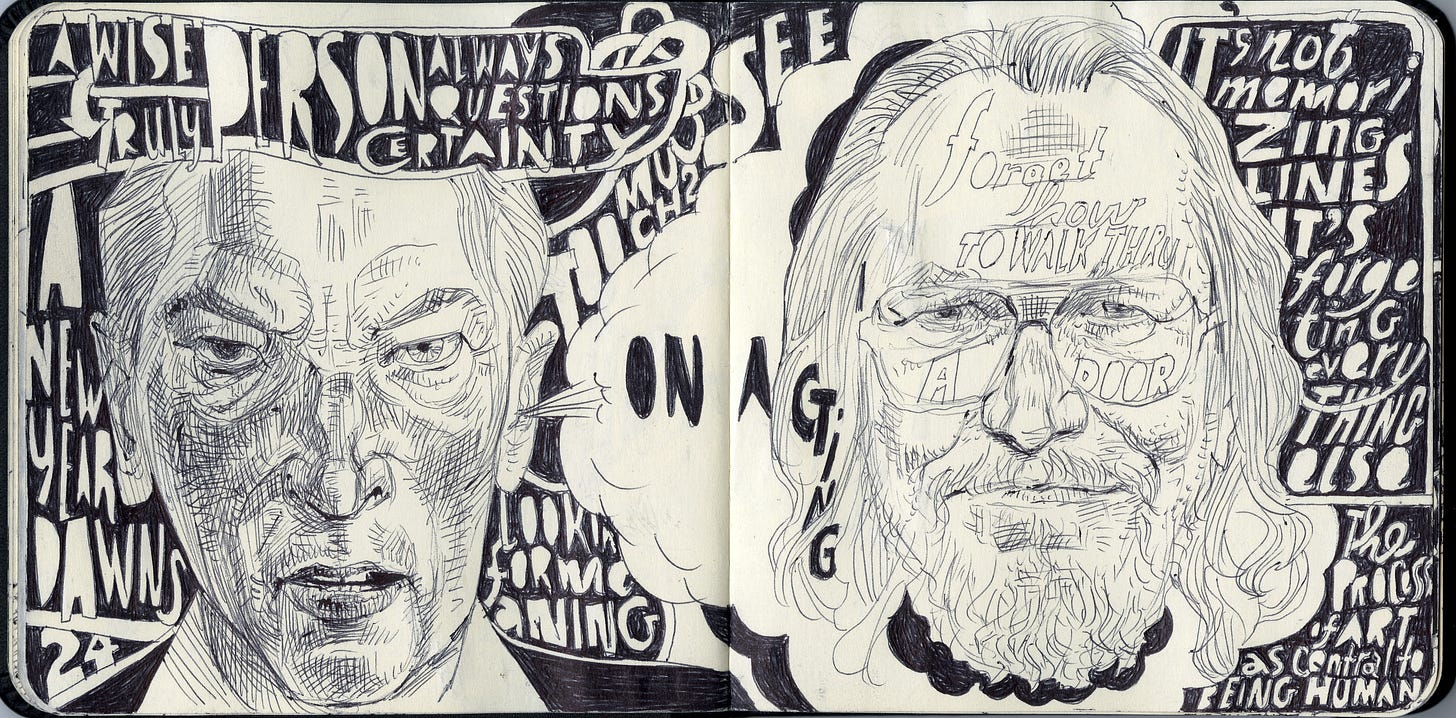 A WISE PERSON ALWAYS
TRULY QUESTIONS
CERTAINTY
A
NEW
YEAR
DAWNS
24
SEE
MU
CH?
LOOKIN
FOR ME
ANING
ON A
CTiNG
forget
how
TO WALK THRU
A DOOR
IT's not
memori
ZinG
LINES
iT's
forge
tinG
every
THING
else
The
PROCESS
of ART
as Central to
BEING HUMAN